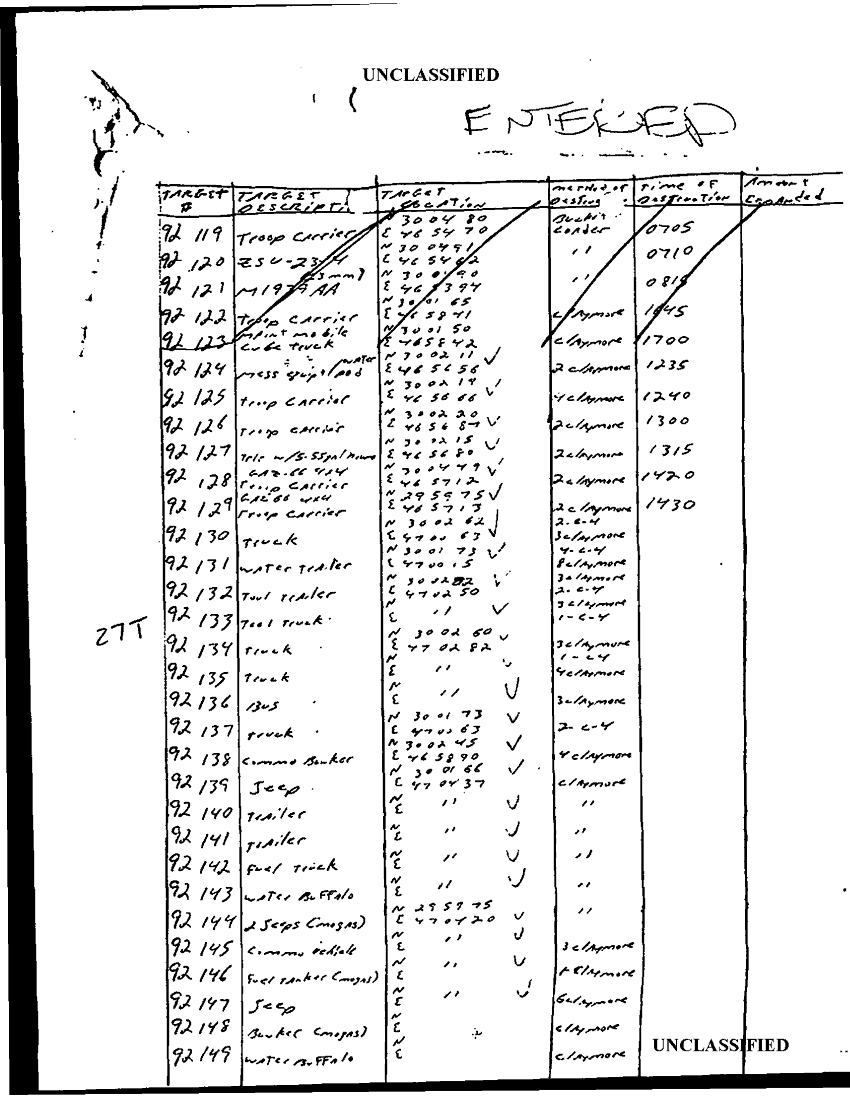 UNCLASSIFIED
ENTERED
TARGET # TARGET DESCRIPTI TARGET LOCATION method of Time of Destruction Amount Expanded
92 119 Troop Carrier N 30 04 80 E 46 54 70 Loader 0705
92 120 ZSU-23-4 N 30 04 91 E 46 54 62 " 0710
92 121 M1939 AA " 081
92 122 Troop Carrier N 30 01 65 E 46 58 41 claymore 1645
92 123 cube truck N 30 01 50 E 46 58 42 claymore 1700
92 124 mess equipt/water pod N 30 02 11 E 46 56 56 ✓ 2 claymore 1235
92 125 troop carrier N 30 02 19 E 46 56 66 ✓ 4 claymore 1240
92 126 troop carrier N 30 02 20 E 46 56 87 ✓ 2 claymore 1300
92 127 N 30 02 15 E 46 56 80 ✓ 2 claymore 1315
92 128 GAZ-66 4x4 Troop Carrier N 30 04 49 E 46 57 12 ✓ 2 claymore 1420
92 129 GAZ 66 4x4 Troop Carrier N 29 59 75 E 46 57 13 ✓ 2 claymore 1430
92 130 Truck N 30 02 62 E 47 00 63 ✓ 2-C-4 3 claymore
92 131 water trailer N 30 01 73 E 47 00 15 ✓ 4-C-4 8 claymore
92 132 Tool trailer N 30 02 82 E 47 02 50 ✓ 3 claymore 2-C-4
27T
92 133 Tool Truck N E " ✓ 3 claymore 1-C-4
92 134 Truck N 30 02 60 E 47 02 82 ✓ 3 claymore 1-C4
92 135 Truck N E " ✓ 4 claymore
92 136 BUS N E " ✓ 3 claymore
92 137 truck N 30 01 73 E 47 00 63 ✓ 2-C-4
92 138 Commo Bunker N 30 02 45 E 46 58 90 ✓ 4 claymore
92 139 Jeep N 30 01 66 E 47 04 37 ✓ claymore
92 140 Trailer N E " ✓ "
92 141 Trailer N E " ✓ "
92 142 Fuel Truck N E " ✓ "
92 143 Water Buffalo N E " ✓ "
92 144 2 Jeeps (mogas) N 29 59 75 E 47 04 20 ✓ "
92 145 Commo vehicle N E " ✓ 3 claymore
92 146 Fuel tanker (mogas) N E " ✓ claymore
92 147 Jeep N E " ✓ 6 claymore
92 148 Bunker (mogas) N E claymore
92 149 water Buffalo N E claymore
UNCLASSIFIED